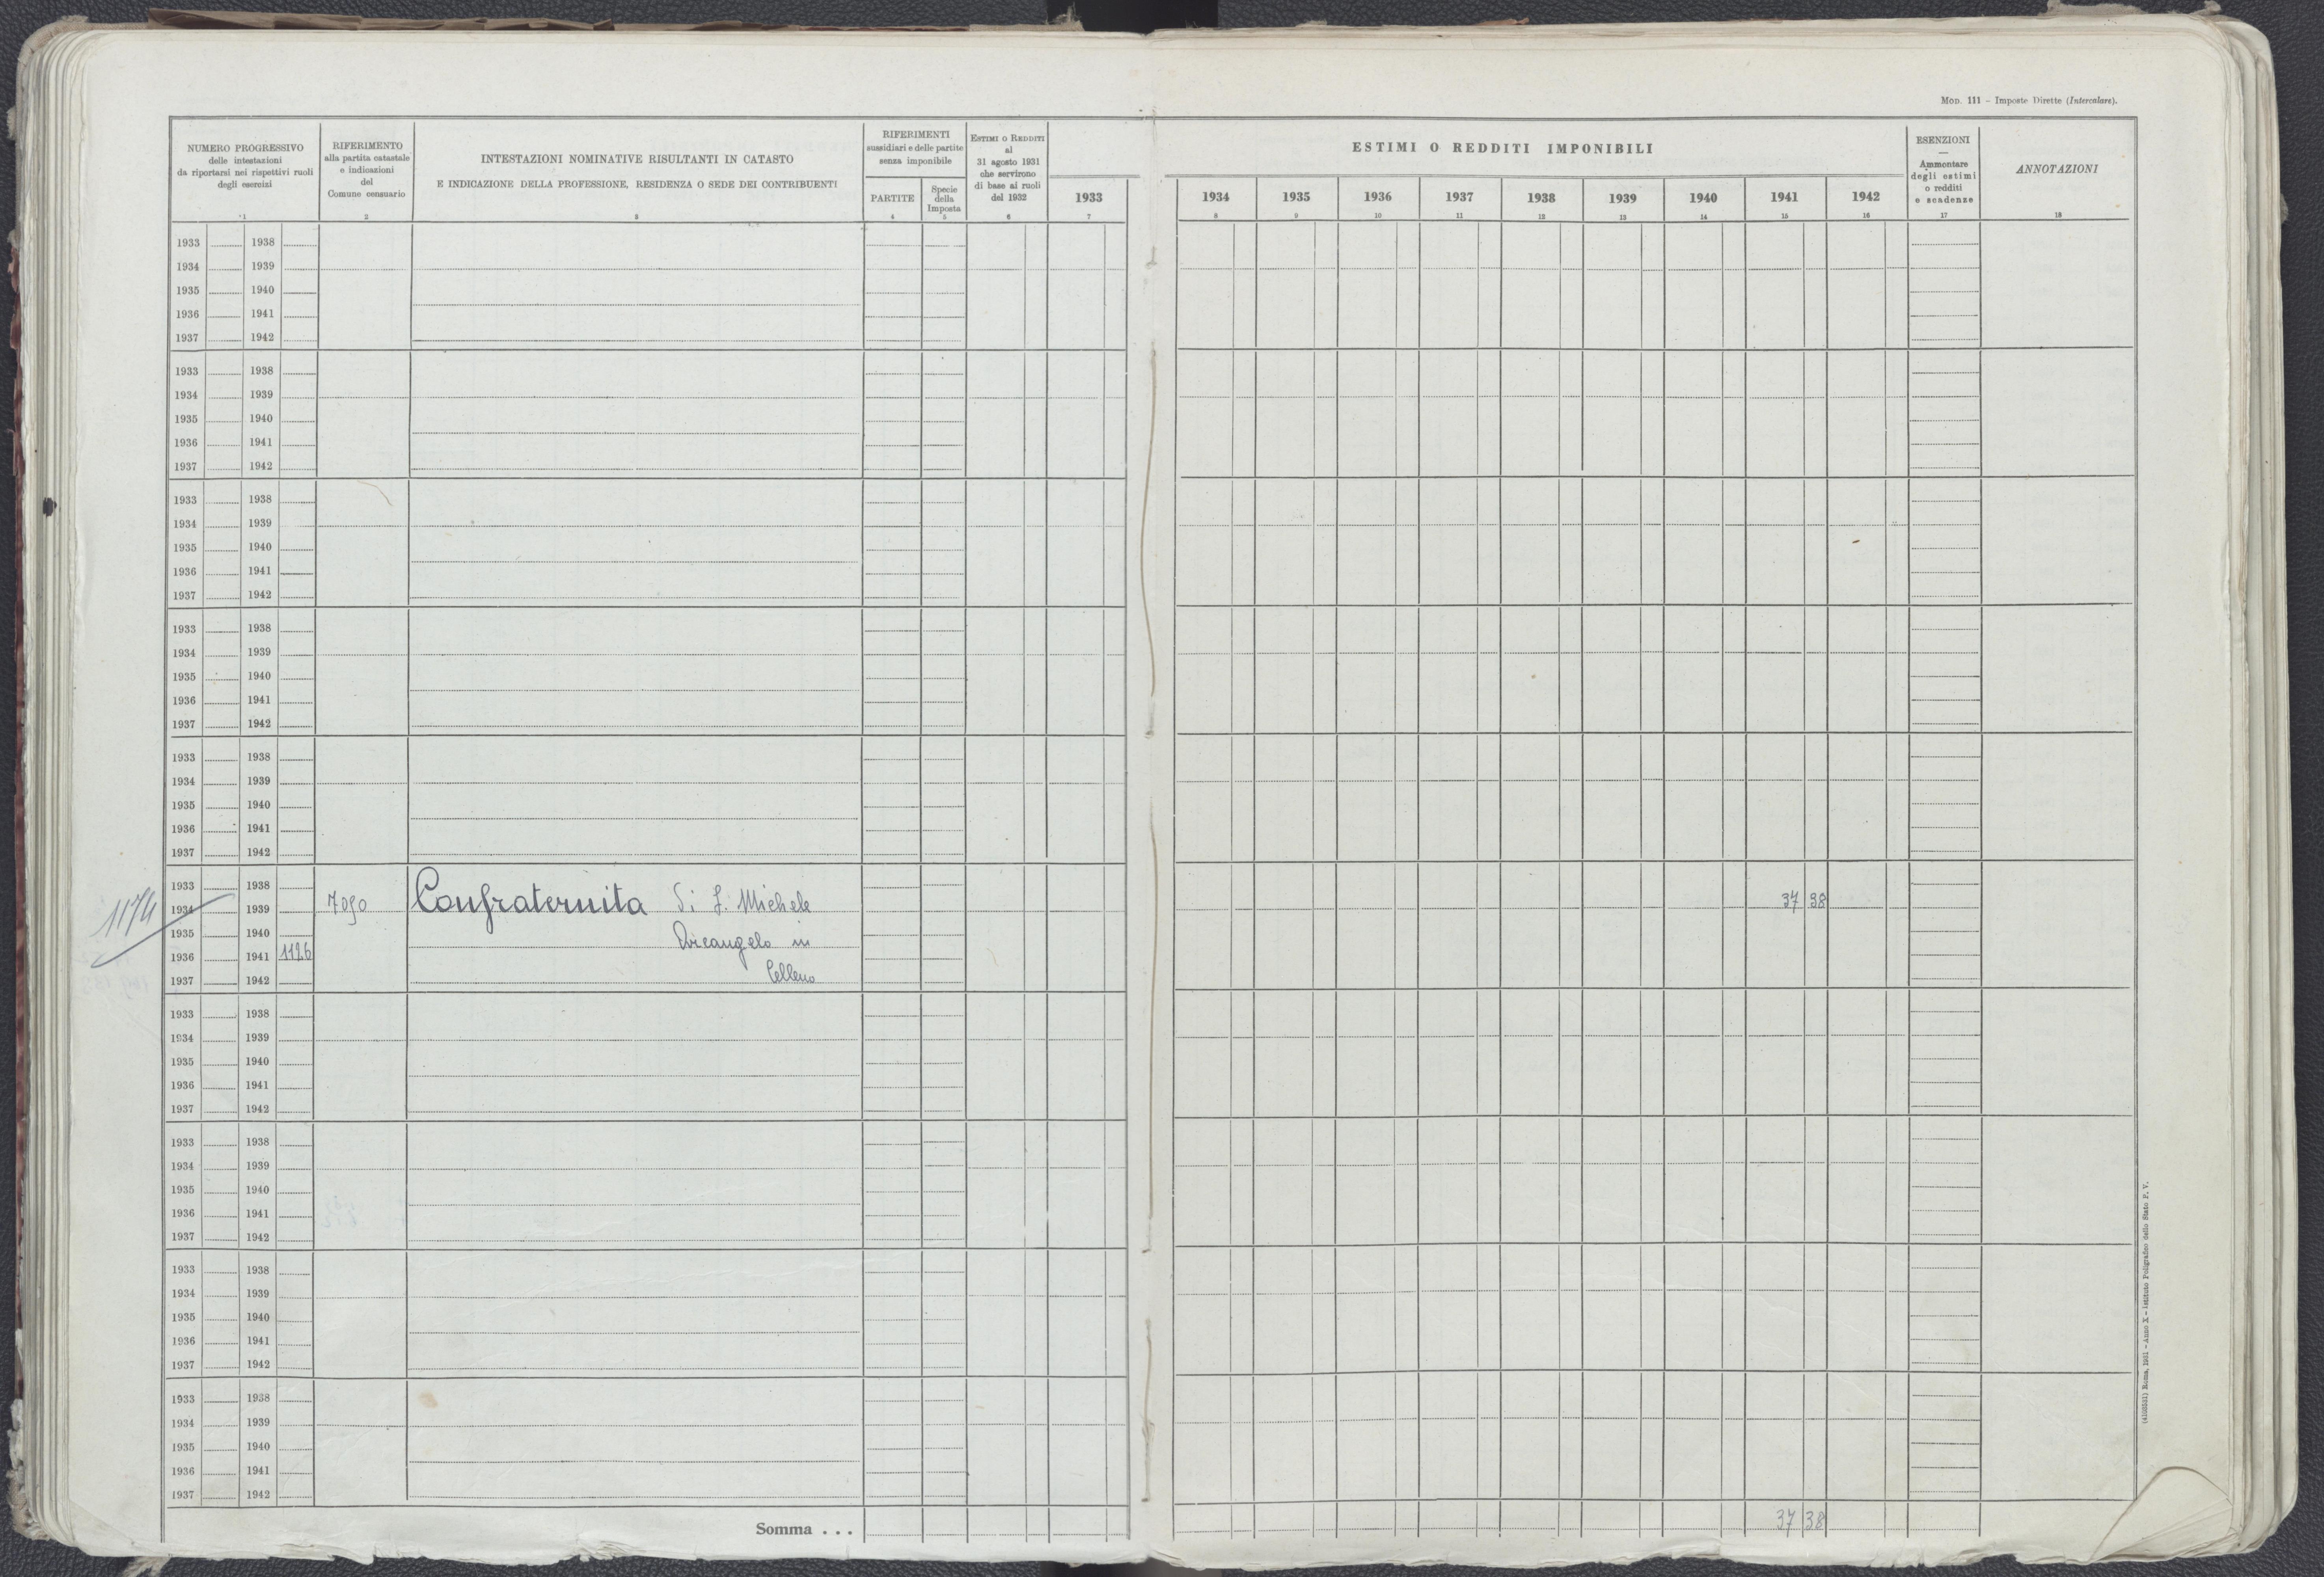 Mod. 111 - Imposte Dirette (Intercalare).
NUMERO PROGRESSIVO
delle intestazioni
da riportarsi nei rispettivi ruoli
degli esercizi
1
RIFERIMENTO
alla partita catastale
e indicazioni
del
Comune censuario
2
INTESTAZIONI NOMINATIVE RISULTANTI IN CATASTO
E INDICAZIONE DELLA PROFESSIONE, RESIDENZA O SEDE DEI CONTRIBUENTI
3
RIFERIMENTI
sussidiari e delle partite
senza imponibile
PARTITE
4
Specie
della
Imposta
5
Estimi o Redditi
al
31 agosto 1931
che servirono
di base ai ruoli
del 1932
6
1933
7
ESTIMI O REDDITI IMPONIBILI
1934 1935 1936 1937 1938 1939 1940 1941 1942
8 9 10 11 12 13 14 15 16
ESENZIONI
—
Ammontare
degli estimi
o redditi
e scadenze
17
ANNOTAZIONI
18
1933 1938
1934 1939
1935 1940
1936 1941
1937 1942
1933 1938
1934 1939
1935 1940
1936 1941
1937 1942
1933 1938
1934 1939
1935 1940
1936 1941
1937 1942
1933 1938
1934 1939
1935 1940
1936 1941
1937 1942
1933 1938
1934 1939
1935 1940
1936 1941
1937 1942
1933 1938
1174 1934 1939 7090 Confraternita di S. Michele 37 38
1935 1940 Arcangelo in
1936 1941 1126
1937 1942 Celleno
1933 1938
1934 1939
1935 1940
1936 1941
1937 1942
1933 1938
1934 1939
1935 1940
1936 1941
1937 1942
1933 1938
1934 1939
1935 1940
1936 1941
1937 1942
1933 1938
1934 1939
1935 1940
1936 1941
1937 1942
Somma . . . 37 38
Roma, 1931 - Anno X - Istituto Poligrafico dello Stato P. V.